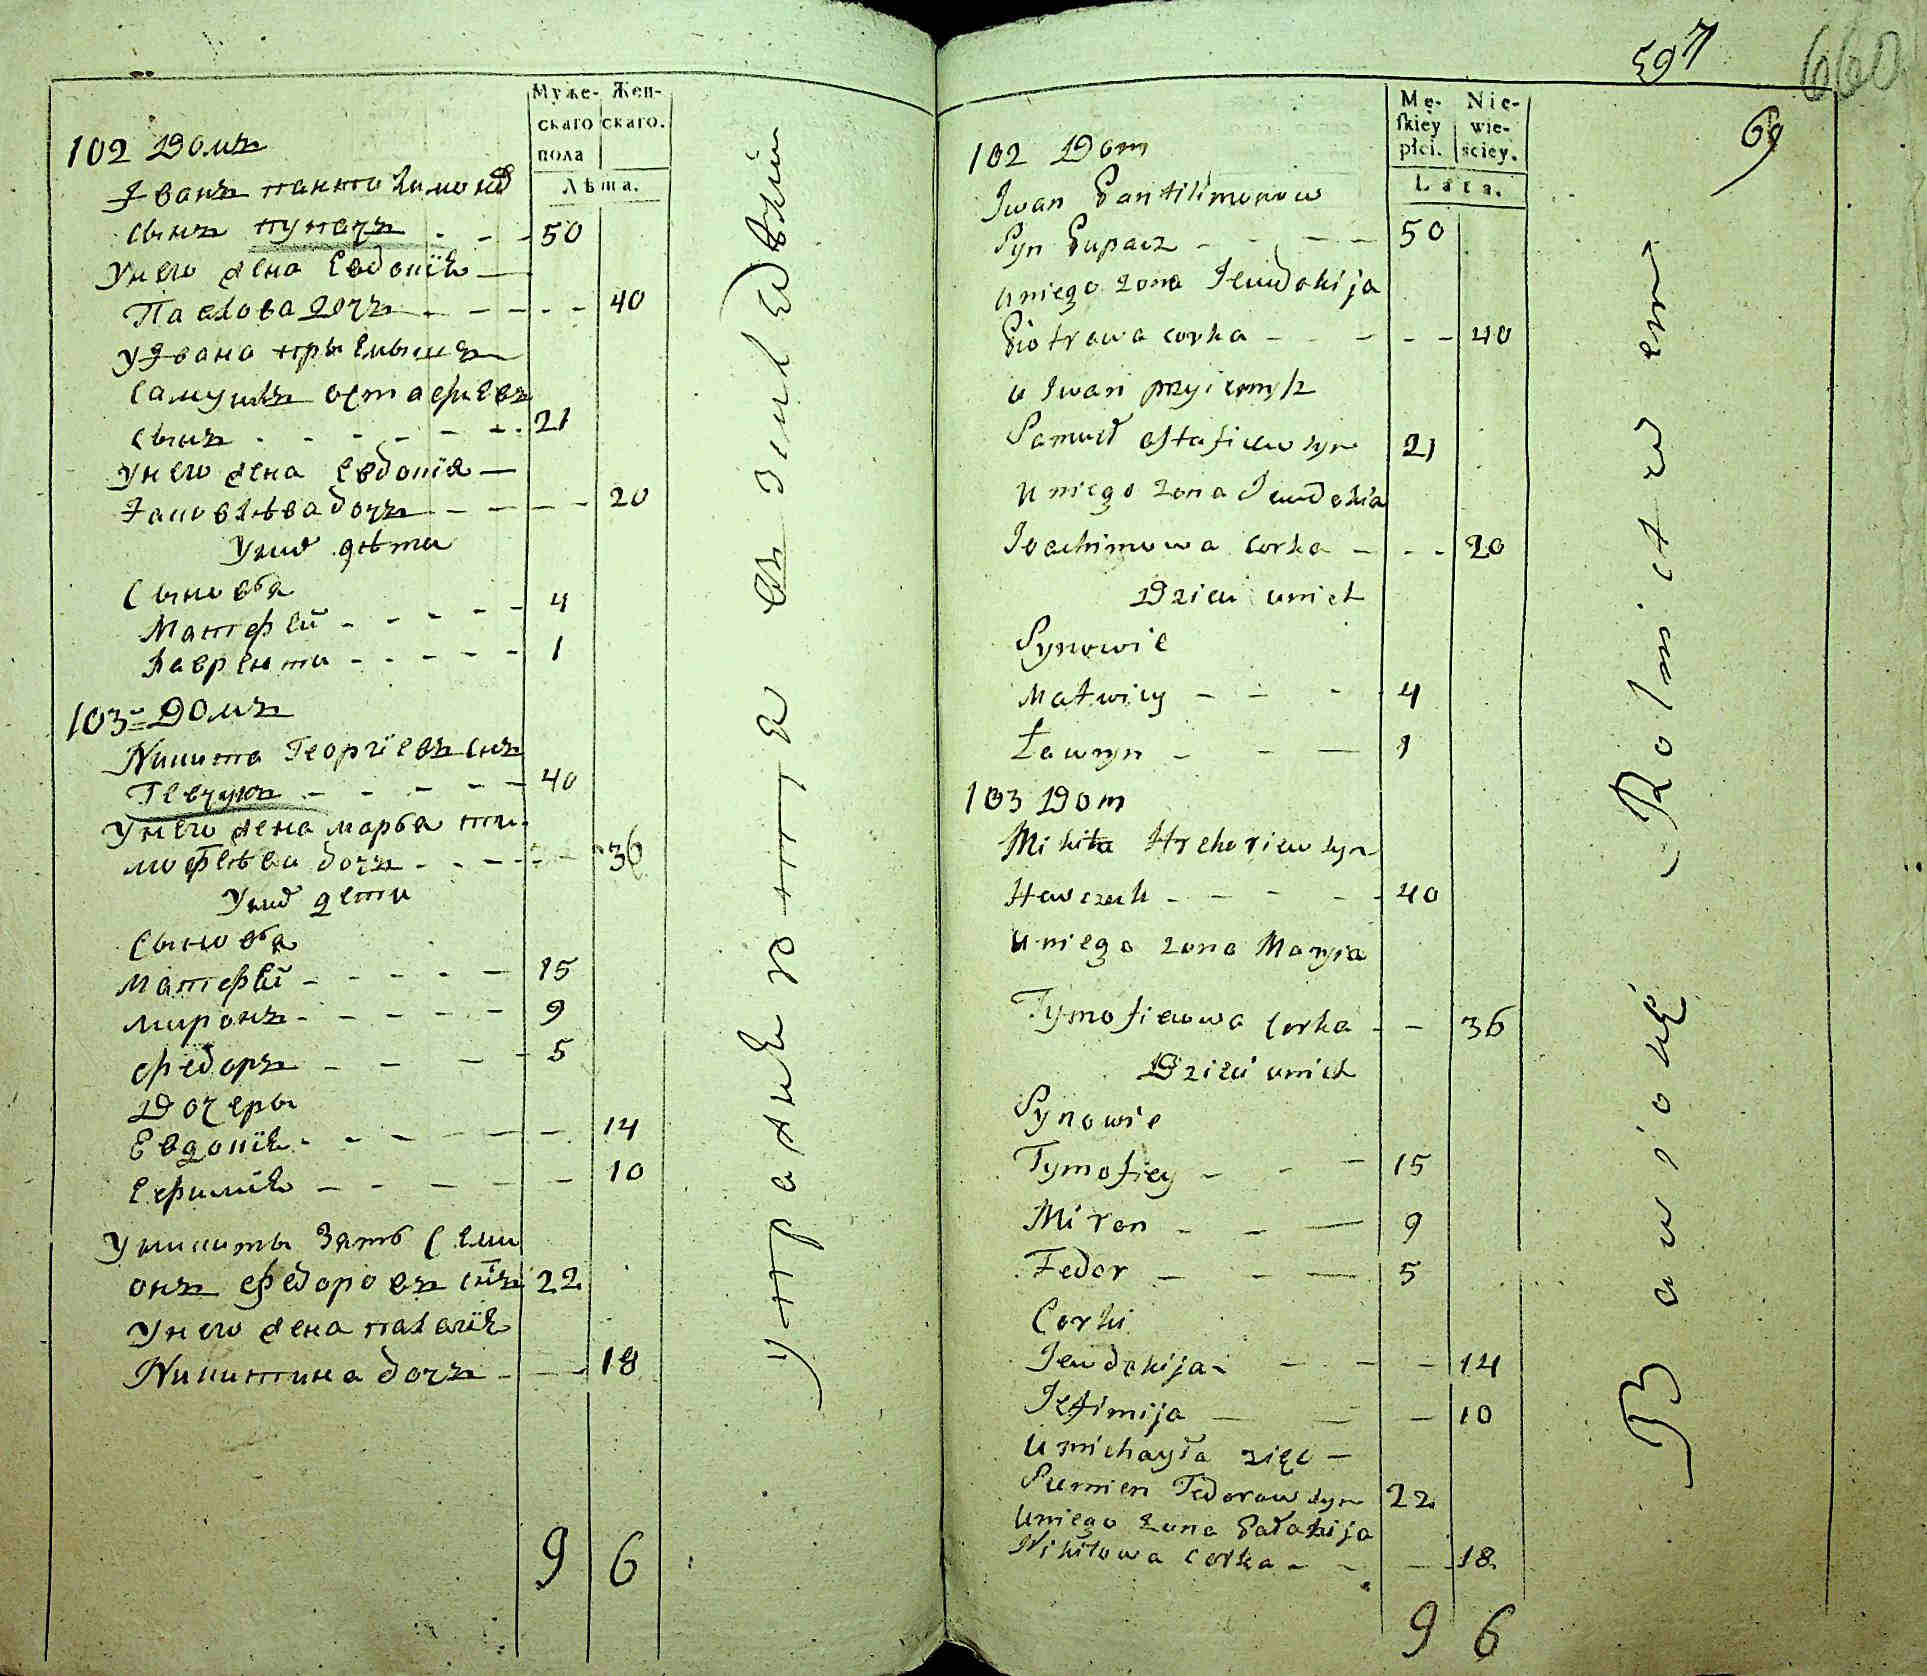 Муже-
скаго
пола
Жен-
скаго.
Лѣта.
102 Домъ
Иванъ пантилимоновъ
сынъ пупачъ - - - 50
У него жена Евдокія -
Павлова дочъ - - - - - 40
У Ивана прыемышъ
Самуилъ остафиевъ
сынъ - - - - - - 21
У него жена Евдокія -
дочъ - - - - - 20
У них дѣти
Сыновья
Матфѣй - - - - - 4
Лаврынти - - - - - 1
103 Домъ
Никита Георгіевъ снъ
Гевчукъ - - - - - 40
У него жена марья ти-
мофѣева дочъ - - - - - 36
У них дети
Сыновья
матфѣй - - - - - 15
миронъ - - - - - 9
федоръ - - - - 5
Дочеры
Евдокія - - - - - - 14
Ефимія - - - - - - 10
У никиты Зять Семи
онъ федоровъ снъ 22
У него жена палагія
Никитина дочъ - - - 18
9 6
упражняютя въ земледѣлии
597
660
69
Mę-
skiey
płci.
Nie-
wie-
sciey.
Lata.
102 Dom
Iwan Pantilimonow
Syn Pupacz - - - - 50
u niego zona Jewdokija
Piotrowa corka - - - - - 40
u Iwan przyiemysz
Samuel ostafiew syn 21
u niego zona Jewdokia
Joachimowa corka - - - 20
Dzieci u nich
Synowie
Matwiey - - - 4
Ławryn - - - 1
103 Dom
Mikita Hrehoriew syn
Hawczuk - - - - - 40
u niego zona Maryia
Tymofiewowa corka - - 36
Dzieci u nich
Synowie
Tymofiey - - - 15
Miron - - - 9
Fedor - - - 5
Corki
Jewdokija - - - - 14
Jefimija - - - 10
u michayła zięc -
Siemien Fedorow syn 22
u niego zona Pałahija
Nikitowa corka - - - 18
9 6
Bawiosię Rolnictwem